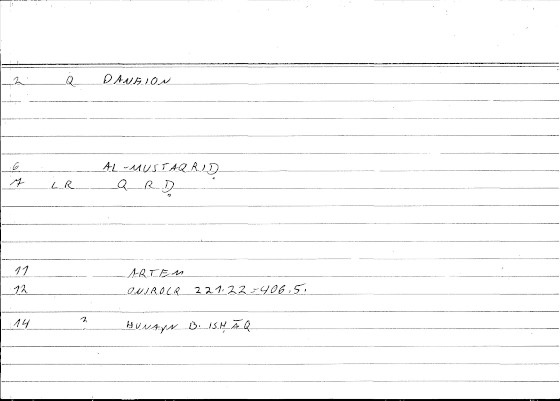 2 Q DANEION
6 AL-MUSTAQRIḌ
7 LR Q R Ḍ
11 ARTEM
12 ONIROCR 221.22 = 406.5.
14 ? ḤUNAYN B. ISḤĀQ